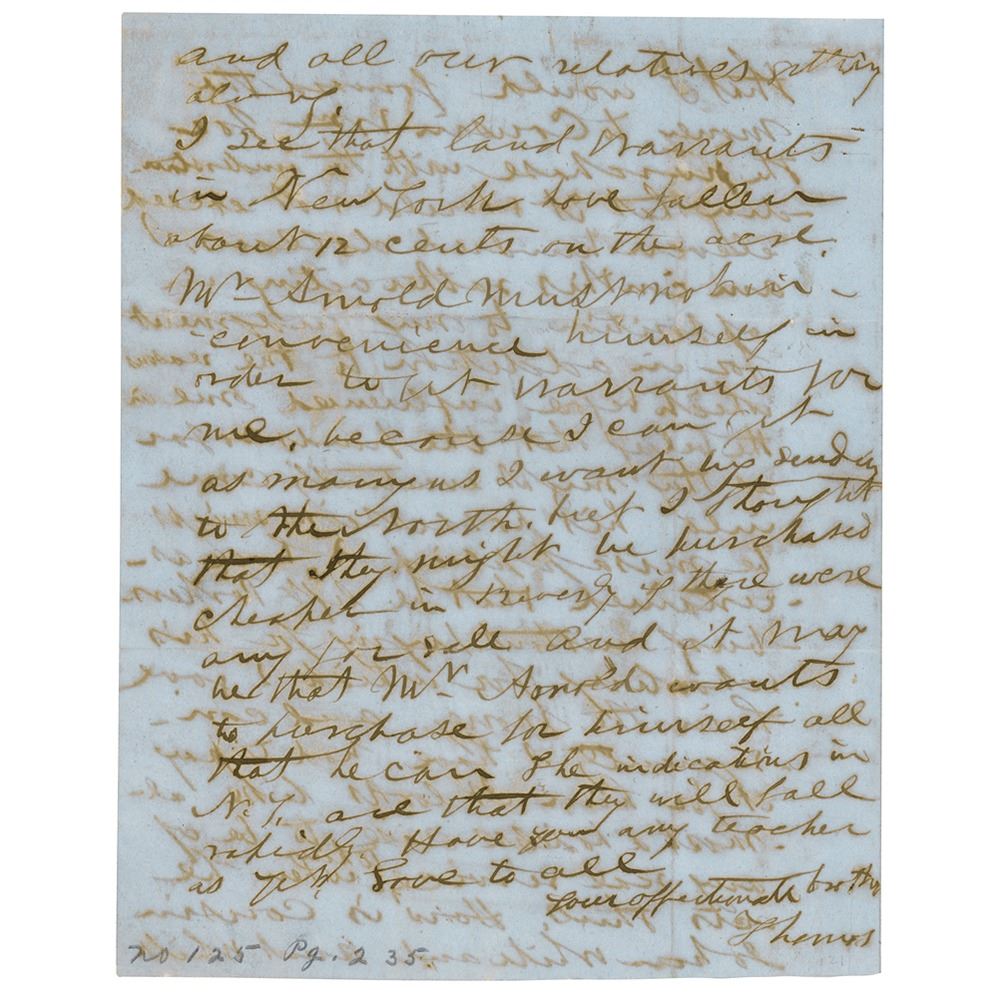 and all our relatives getting
along.
I see that land warrants
in New York have fallen
about 12 cents on the acre.
Mr Arnold must not in-
-convenience himself in
order to get warrants for
me, because I can get
as many as I want by sending
to the North. but I thought
that they might be purchased
cheaper in Beverly if there were
any for sale and it may
be that Mr Arnold wants
to purchase for himself all
that he can The indications in
N.Y. are that they will fall
rapidly. Have you any teacher
as yet. Love to all
Your affectionate brother
Thomas
no 125 Pg. 235.